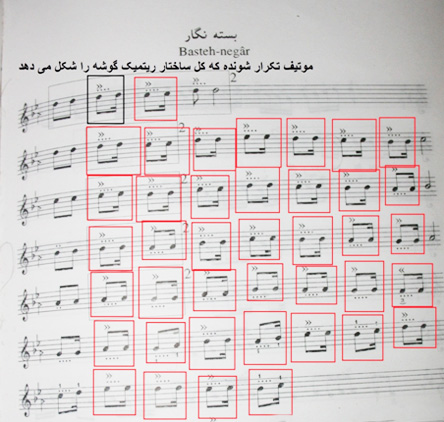 بسته نگار
Basteh-negâr
موتیف تکرار شونده که کل ساختار ریتمیک گوشه را شکل می دهد
2
2
2
2
2